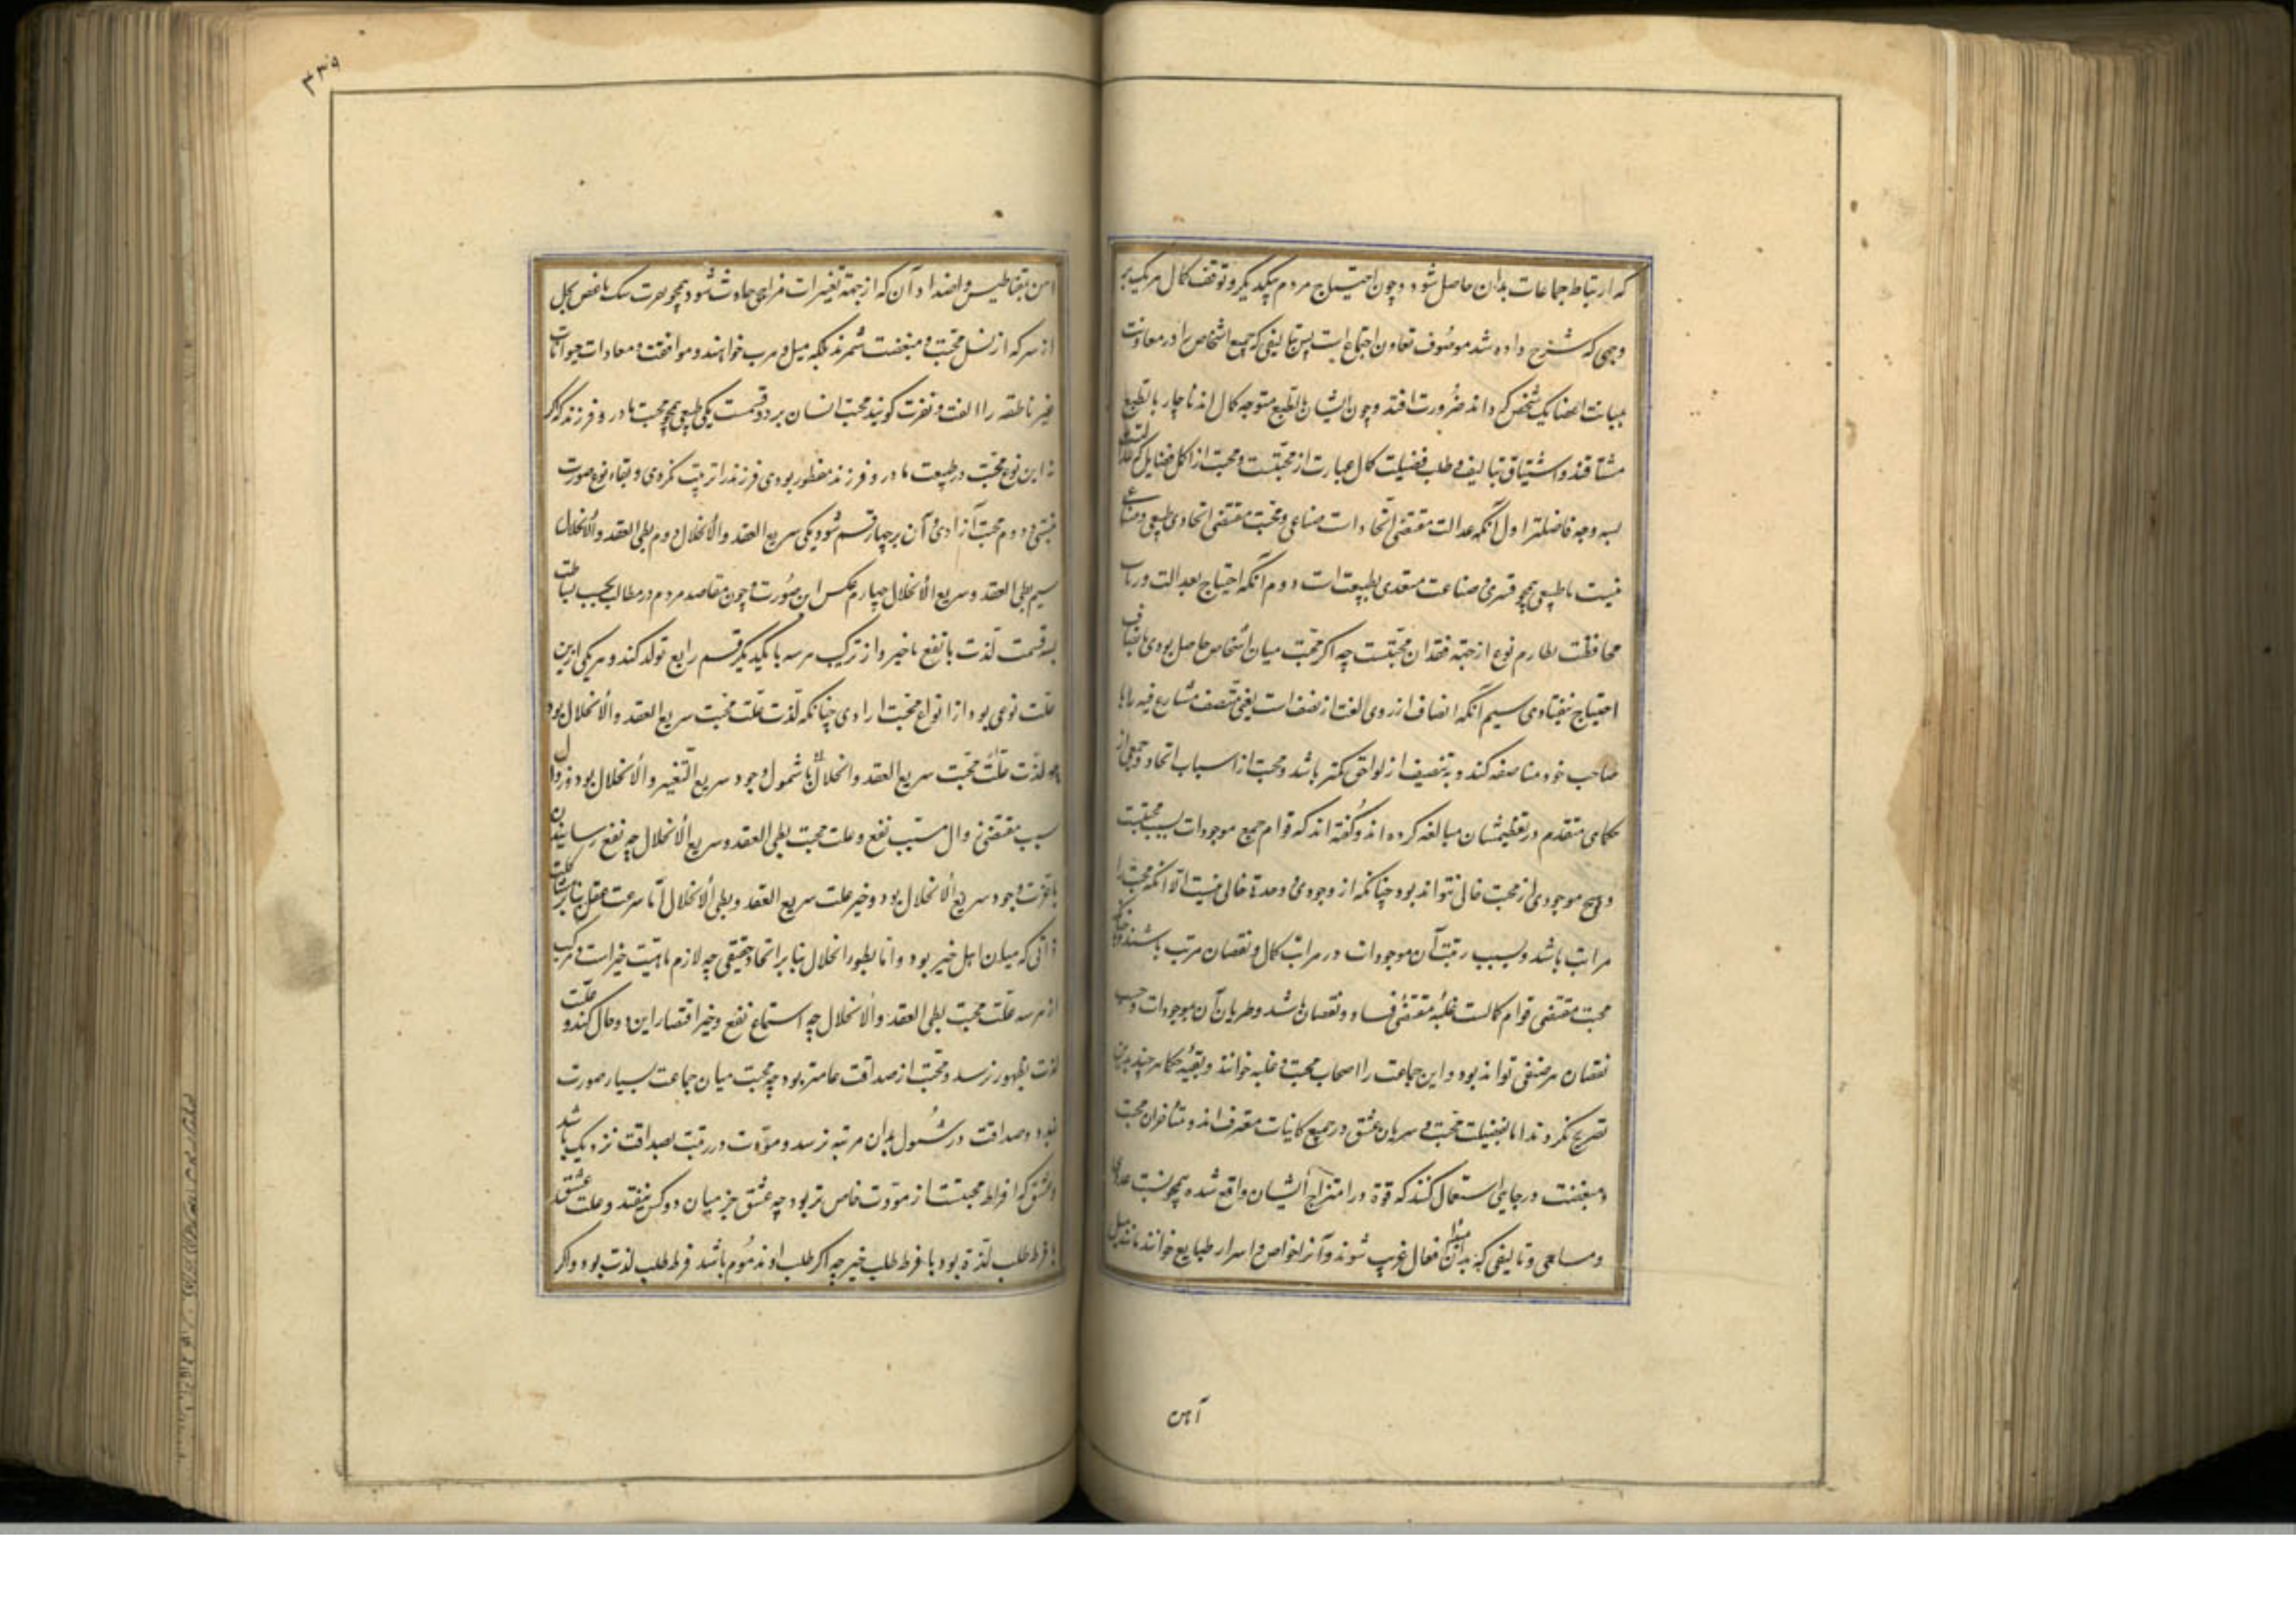 که ارتباط جماعات بدان حاصل شود و چون احتیاج مردم بیکدیگر و توقف کمال هر یک بر
وجهی که شرح داده شد موصوف تعاون اجتماع است پس تالیفی که جمیع اشخاص را در معاونت
بمثابت اعضا یک شخص گرداند ضرورت افتد و چون ایشان بالطبع متوجه کمال اند ناچار بالطبع
مشتاقند و اشتیاق تبالیف و طلب فضیلت کمال عبارت از محبتست و محبت از اکل فضایل که عدالت
بسه وجه فاضلتر اول آنکه عدالت مقتضی اتحادات صناعی و محبت مقتضی اتحادی طبیعی و صناعی
نیست با طبیعی همچو قسری و صناعت مقتدی بطبیعت است دوم آنکه احتیاج بعدالت در باب
محافظت نظام نوع از جهة فقدان محبتست چه اگر محبت میان اشخاص حاصل بودی بانصاف
احتیاج نیفتادی سیم آنکه انصاف از روی لغت از نصف است یعنی متصف مشارع فیه را با
صاحب خود مناصفه کند و تنصیف از لواحق تکثر باشد و محبت از اسباب اتحاد و جمعی از
حکمای متقدم در تعظیمشان مبالغه کرده اند و گفته اند که قوام جمیع موجودات بسبب محبتست
و هیچ موجودی از محبت خالی نتواند بود چنانکه از وجودی و وحدة خالی نیست الا آنکه محبت را
مراتب باشد و بسبب رتبت آن موجودات در مراتب کمال و نقصان مرتب باشند و چنانکه
محبت مقتضی قوام کمالست غلبه مقتضی فساد و نقصان باشد و طریان آن بموجودات و حسب
نقصان هر صنفی تواند بود و این جماعت را اصحاب محبت و غلبه خوانند و بقیه حکما هر چند بدین
تصریح نکردند اما بفضیلت محبت و سریان عشق در جمیع کاینات معترف اند و متأخران محبت
و مبغضت در جایی استعمال کنند که قوة در امتزاج ایشان واقع شده همچو نسبت عددی
و مساحی و تالیفی که بدان مبدأ افعال غریب شوند و آنرا خواص و اسرار طبایع خوانند مانند میل
آهن
۴۳۹
آهن بمقناطیس و اضداد آن که از جهة تغیرات مزاجی حادث شود همچو نفرت سنک باغض الخل
از سرکه از نسل محبت و مبغضت نشمرند بلکه میل و هرب خوانند و موافقت و معادات حیوانات
غیر ناطقه را الفت و نفرت کویند محبت انسان بر دو قسمت یکی طبیعی همچو محبت مادر و فرزند که اگر
نه این نوع محبت در طبیعت مادر و فرزند مفطور بودی فرزند را تربیت نکردی و بقاء نوع صورت
نبستی و دوم محبت آزادی و آن بر چهار قسم شود یکی سریع العقد و الانحلال دوم بطی العقد و الانحلال
سیم بطی العقد و سریع الانحلال چهارم عکس این صورت و چون مقاصد مردم در مطالب بحسب بساطت
بسه قسمت لذت یا نفع یا خیر و از ترکب هر سه با یکدیگر قسم رابع تولد کند و هر یکی ازین
علت نوعی بود از انواع محبت ارادی چنانکه لذت علت محبت سریع العقد و الانحلال بود
چه لذت علت محبت سریع العقد و انحلال با شمول وجود سریع التغیر و الانحلال بود و زوال
سبب مقتضی زوال مسبب نفع و علت محبت بطی العقد و سریع الانحلال چه نفع رسانیدن
با عزت وجود سریع الانحلال بود و خیر علت سریع العقد و بطی الانحلال اما سرعت عقل بنا بر مشاکلت
ذاتی که میان اهل خیر بود و اما بطور انحلال بنا بر اتحاد حقیقی چه لازم ماهیت خیر است و مرکب
از هر سه علت محبت بطی العقد و الانحلال چه استماع نفع و خیر اقتضا این دو حال کند و علت
لذت بظهور نرسد و محبت از صداقت عامتر بود چه محبت میان جماعت بسیار صورت
بندد و صداقت در شمول بدان مرتبه نرسد و مودت در رتبت بصداقت نزدیک باشد
و عشق که افراط محبتست از مودت خاص تر بود چه عشق جز میان دو کس نیفتد و علت عشق
یا فرط طلب لذة بود یا فرط طلب خیر چه اکر طلب او مذموم باشد فرط طلب لذت بود و اکر